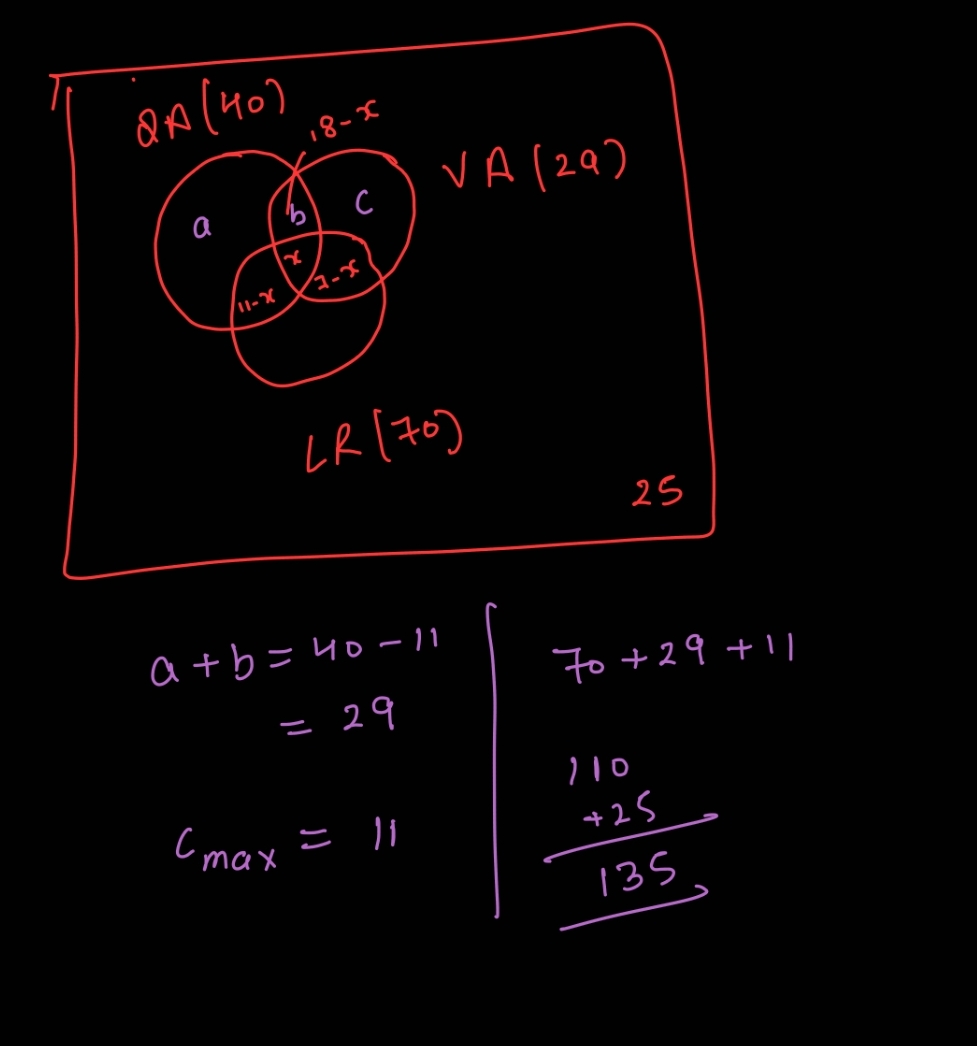 QA(40)
18-x
VA(29)
a
b
c
x
11-x
7-x
LR(70)
25
a+b = 40-11
= 29
Cmax = 11
70+29+11
110
+25
135